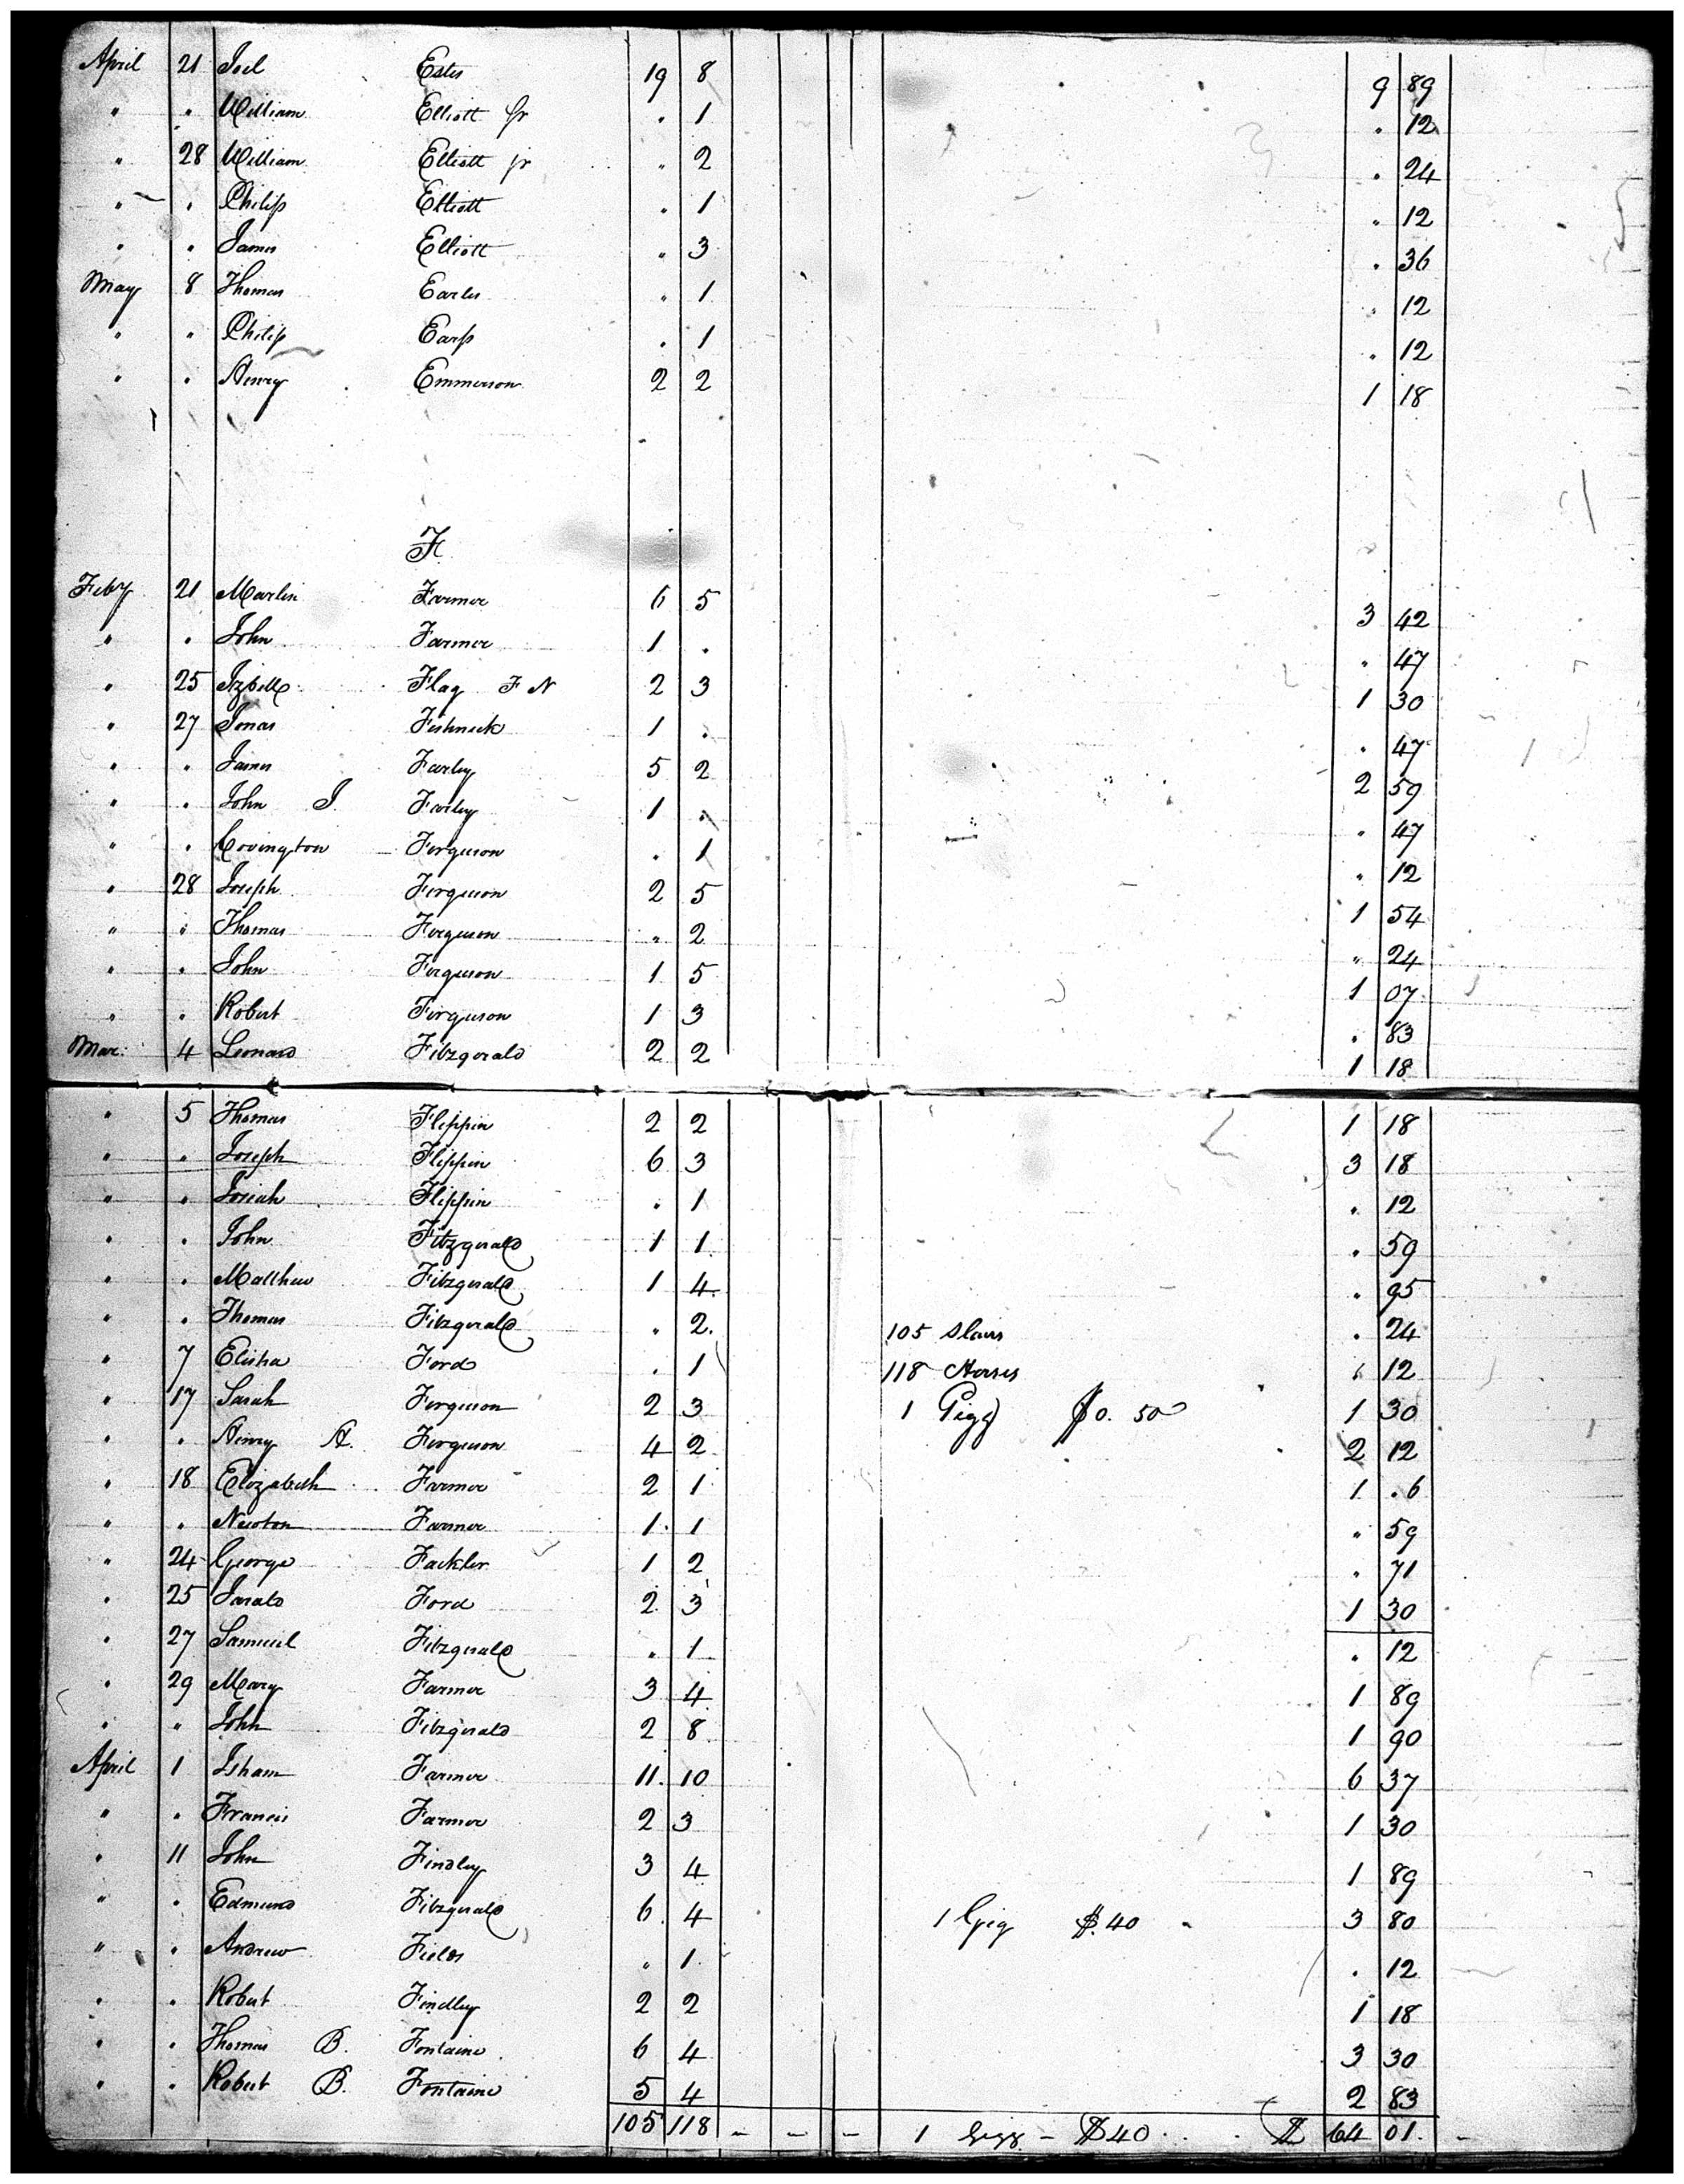 April 21 Joel Estes 19 8 9 89
" " William Elliott Sr " 1 " 12
" 28 William Elliott jr " 2 " 24
" " Philip Elliott " 1 " 12
" " James Elliott " 3 " 36
May 8 Thomas Earles " 1 " 12
" " Philip Earp " 1 " 12
" " Henry Emmerson 2 2 1 18
F
Feby 21 Marlin Farmer 6 5 3 42
" " John Farmer 1 " " 47
" 25 Flag F N 2 3 1 30
" 27 Jonas 1 " " 47
" " James Farley 5 2 2 59
" " John J. Farley 1 " " 47
" " Covington Ferguson " 1 " 12
" 28 Joseph Ferguson 2 5 1 54
" " Thomas Ferguson " 2 " 24
" " John Ferguson 1 5 1 07
" " Robert Ferguson 1 3 " 83
Mar: 4 Leonard Fitzgerald 2 2 1 18
" 5 Thomas Flippin 2 2 1 18
" " Joseph Flippin 6 3 3 18
" " Josiah Flippin " 1 " 12
" " John Fitzgerald 1 1 " 59
" " Matthew Fitzgerald 1 4 " 95
" " Thomas Fitzgerald " 2 105 slaves " 24
" 7 Elisha Ford " 1 118 Horses " 12
" 17 Sarah Ferguson 2 3 1 Gigg $0. 50 1 30
" " Henry A. Ferguson 4 2 2 12
" 18 Elizabeth Farmer 2 1 1 .6
" " Newton Farmer 1 1 " 59
" 24 George Fackler 1 2 " 71
" 25 Ford 2 3 1 30
" 27 Samuel Fitzgerald " 1 " 12
" 29 Mary Farmer 3 4 1 89
" " John Fitzgerald 2 8 1 90
April 1 Isham Farmer 11 10 6 37
" " Francis Farmer 2 3 1 30
" 11 John Findley 3 4 1 89
" " Edmund Fitzgerald 6 4 1 Gig $40 3 80
" " Andrew Fields " 1 " 12
" " Robert Findley 2 2 1 18
" " Thomas B. Fontaine 6 4 3 30
" " Robert B. Fontaine 5 4 2 83
105 118 - - - 1 Gigg - $40 $ 64 01